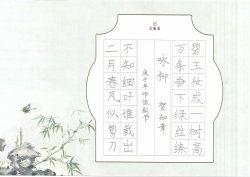 碧玉妆成一树高
万条垂下绿丝绦
咏柳 贺知章
庚子年
不知细叶谁裁出
二月春风似剪刀